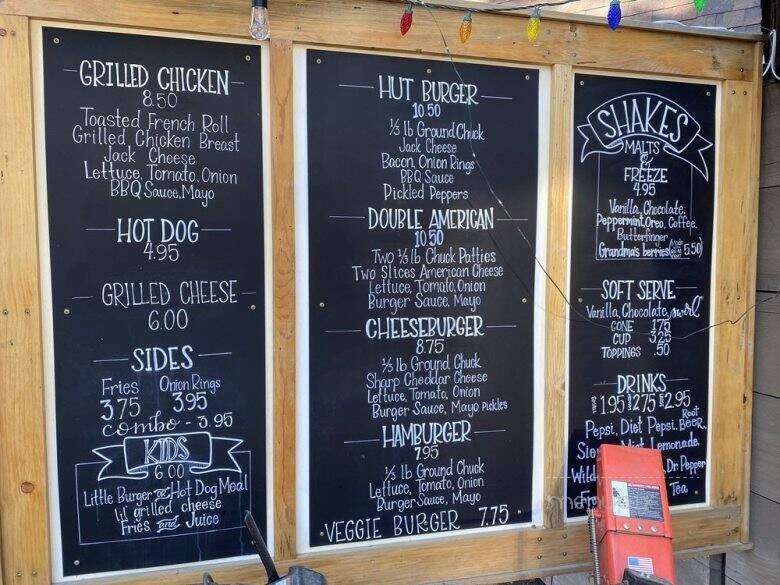 GRILLED CHICKEN
8.50
Toasted French Roll
Grilled Chicken Breast
Jack Cheese
Lettuce, Tomato, Onion
BBQ Sauce, Mayo
HOT DOG
4.95
GRILLED CHEESE
6.00
SIDES
Fries Onion Rings
3.75 3.95
combo - 3.95
KIDS
6.00
Little Burger or Hot Dog Meal
lil' grilled cheese
Fries and Juice
HUT BURGER
10.50
1/3 lb Ground Chuck
Jack Cheese
Bacon, Onion Rings
BBQ Sauce
Pickled Peppers
DOUBLE AMERICAN
10.50
Two 1/3 lb Chuck Patties
Two Slices American Cheese
Lettuce, Tomato, Onion
Burger Sauce, Mayo
CHEESEBURGER
8.75
1/3 lb Ground Chuck
Sharp Cheddar Cheese
Lettuce, Tomato, Onion
Burger Sauce, Mayo Pickles
HAMBURGER
7.95
1/3 lb Ground Chuck
Lettuce, Tomato, Onion
Burger Sauce, Mayo
VEGGIE BURGER 7.75
SHAKES
MALTS
&
FREEZE
4.95
Vanilla, Chocolate,
Peppermint, Oreo, Coffee,
Butterfinger
Grandma's berries 5.50)
SOFT SERVE
Vanilla, Chocolate, swirl"
CONE 1.75
CUP 3.25
TOPPINGS .50
DRINKS
1.95 2.75 2.95
Pepsi, Diet Pepsi, Root Beer,
Mist Lemonade,
Wild Dr Pepper
Tea